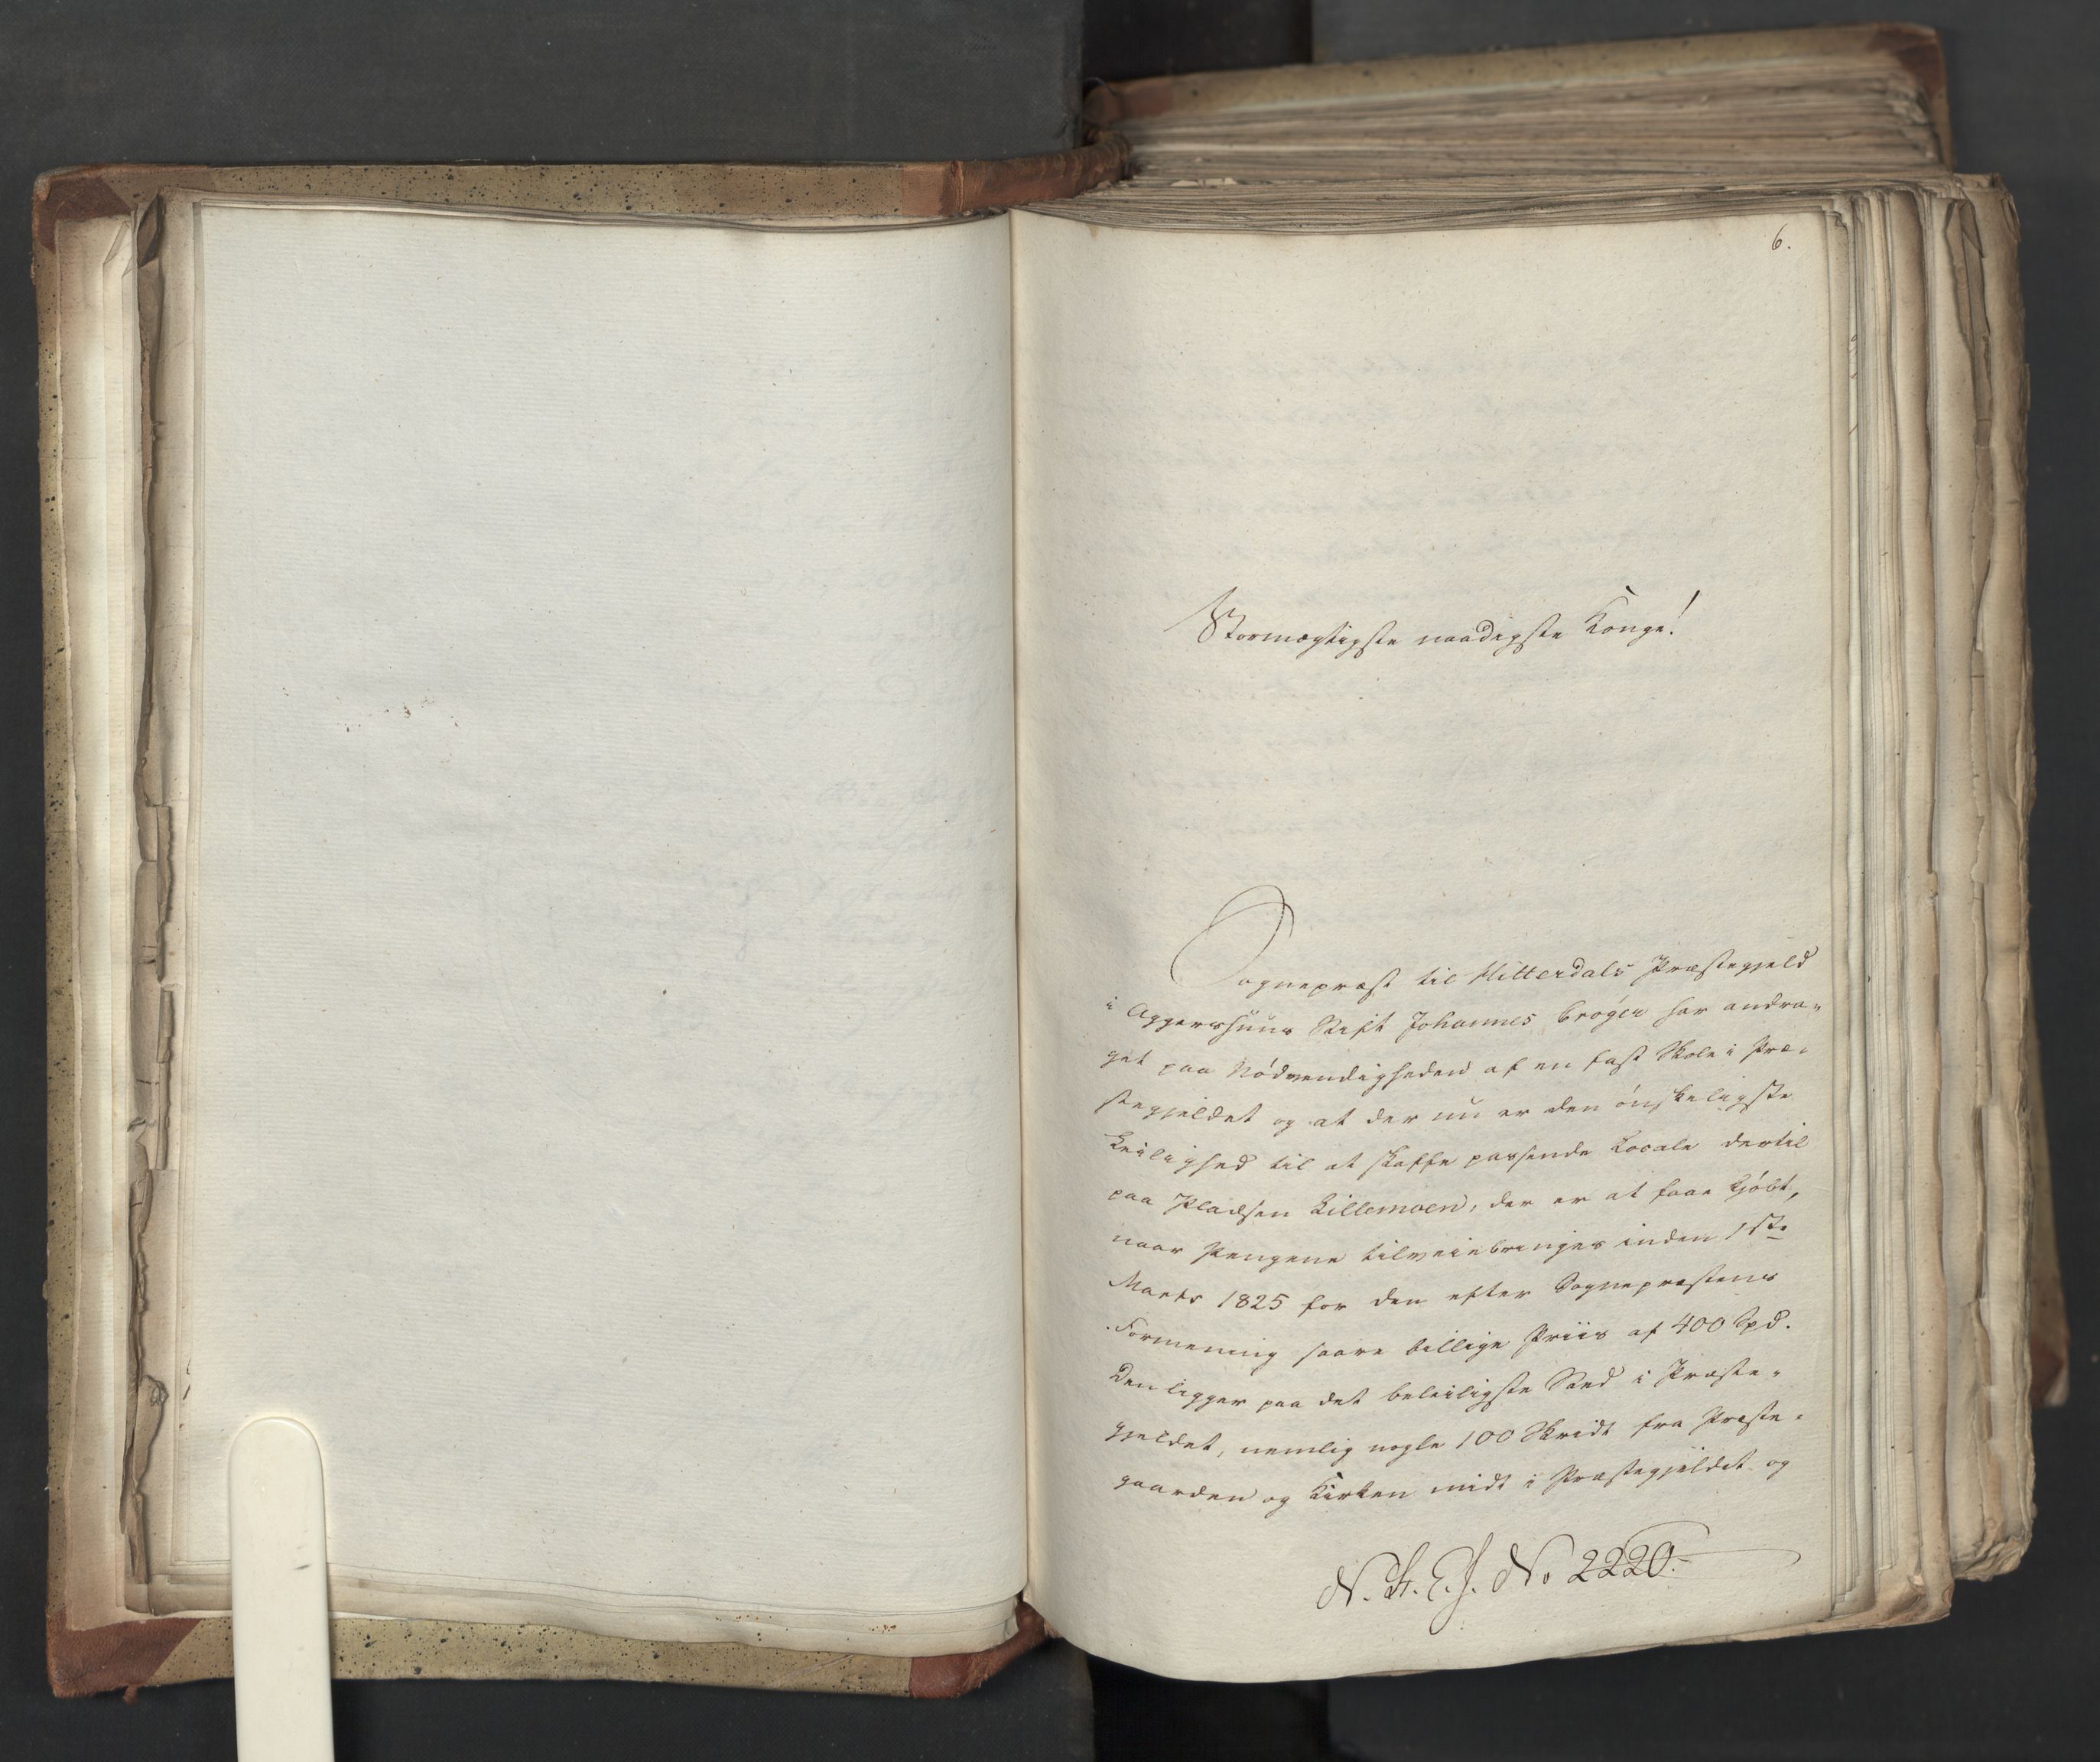 6.
Stormægtigste naadigste Konge!
Sognepræst til Hitterdals Præstegjeld
i Aggershuus Stift Johannes Brøger har andra-
get paa Nødvendigheden af en fast Skole i Præ-
stegjeldet og at der nu er den ønskeligste
Leilighed til at skaffe passende Locale dertil
paa Pladsen Lillemoen, der er at faae kjøbt,
naar Pengene tilveiebringes inden 1ste
Marts 1825 for den efter Sognepræstens
Formening saare billige Priis af 400 Spd.
Den ligger paa det beleiligste Sted i Præste-
gjeldet, nemlig nogle 100 Skridt fra Præste-
gaarden og Kirken midt i Præstegjeldet og
N. St. E. J. No 2220.